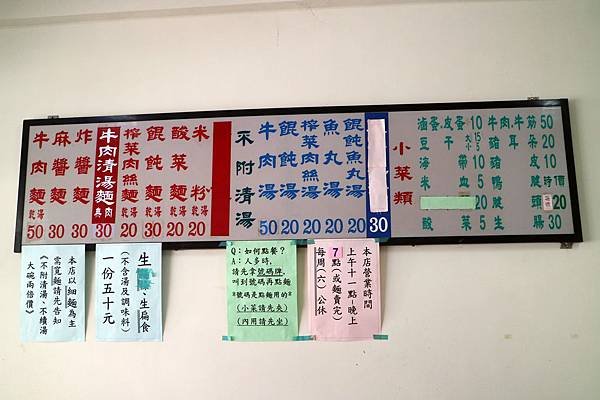 牛肉麵 乾湯 50
麻醬麵 30
炸醬麵 30
牛肉清湯麵 30
榨菜肉絲麵 乾湯 20
餛飩麵 乾湯 30
酸菜麵 乾湯 20
米粉 乾湯 20
不附清湯
牛肉湯 50
餛飩湯 20
榨菜肉絲湯 20
魚丸湯 20
餛飩魚丸湯 20
30
小菜類
滷蛋.皮蛋 10
豆干 15 5
海帶 10
米血 5
酸菜 5
牛肉.牛筋 50
豬耳朵 20
豬皮 10
鴨 時價
頭 20
生腸 30
本店以細麵為主
需寬麵請先告知
(不附清湯、不續湯
大碗兩倍價)
生、生扁食
(不含湯及調味料)
一份五十元
Q:如何點餐?
A:人多時,
請先拿號碼牌,
叫到號碼再點麵
*號碼是點麵用的*
(小菜請先夾)
(內用請先坐)
本店營業時間
上午十一點~晚上
7點(或麵賣完)
每周(六)公休